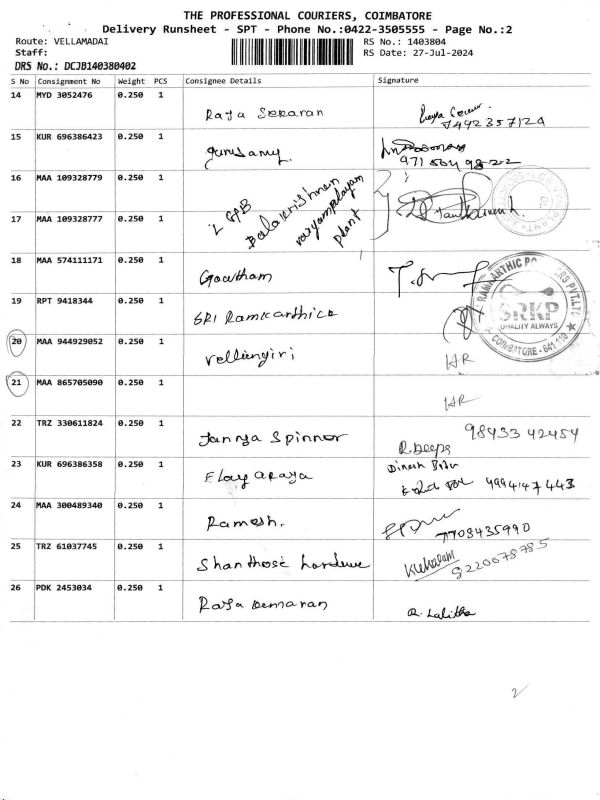 THE PROFESSIONAL COURIERS, COIMBATORE
Delivery Runsheet - SPT - Phone No.:0422-3505555 - Page No.:2
Route: VELLAMADAI RS No.: 1403804
Staff: RS Date: 27-Jul-2024
DRS No.: DCJB140380402
S No Consignment No Weight PCS Consignee Details Signature
14 MYD 3052476 0.250 1 Raja Sekaran
7492357129
15 KUR 696386423 0.250 1 gurusamy.
16 MAA 109328779 0.250 1 LGB
Balakrishnan
variyampalayam
plant
17 MAA 109328777 0.250 1
18 MAA 574111171 0.250 1 Gowtham
19 RPT 9418344 0.250 1 SRI Ramkarthica
RAMKARTHIC
SRKP
QUALITY ALWAYS
COIMBATORE - 641 110
20 MAA 944929052 0.250 1 Vellingiri HR
21 MAA 865705090 0.250 1 HR
22 TRZ 330611824 0.250 1 Jannya Spinner 98433 42454
R. Deepa
23 KUR 696386358 0.250 1 Elayaraja Dinesh Babu
9994147443
24 MAA 300489340 0.250 1 Ramesh. 7708435990
25 TRZ 61037745 0.250 1 Shanthose
9220678785
26 PDK 2453034 0.250 1 Raja R. Lalitha
2